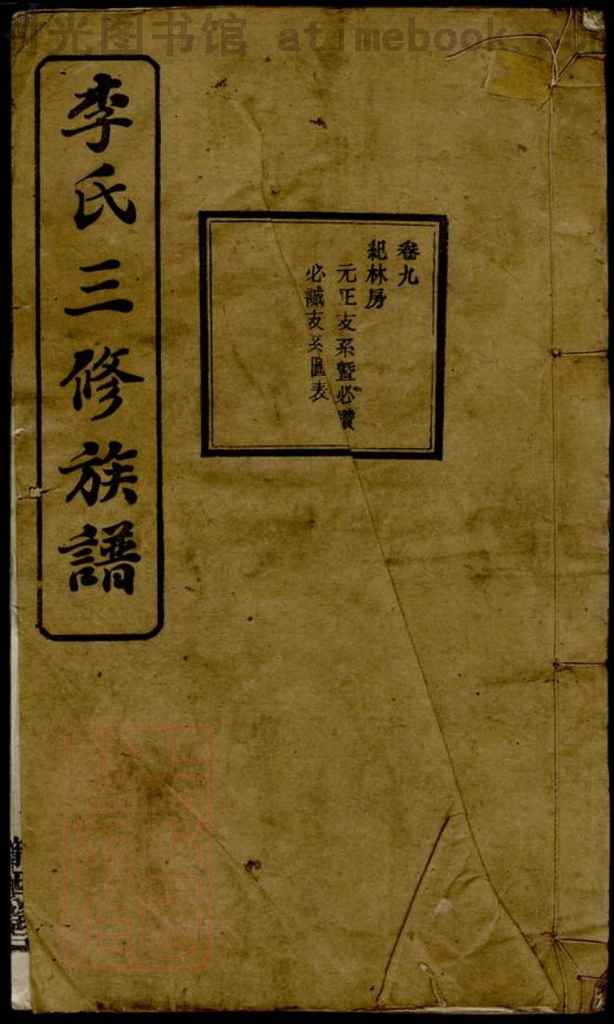 光图书馆 atimebook.
李氏三修族譜
卷九
紀林房
元正友系暨必瓚
必誠友系匯表